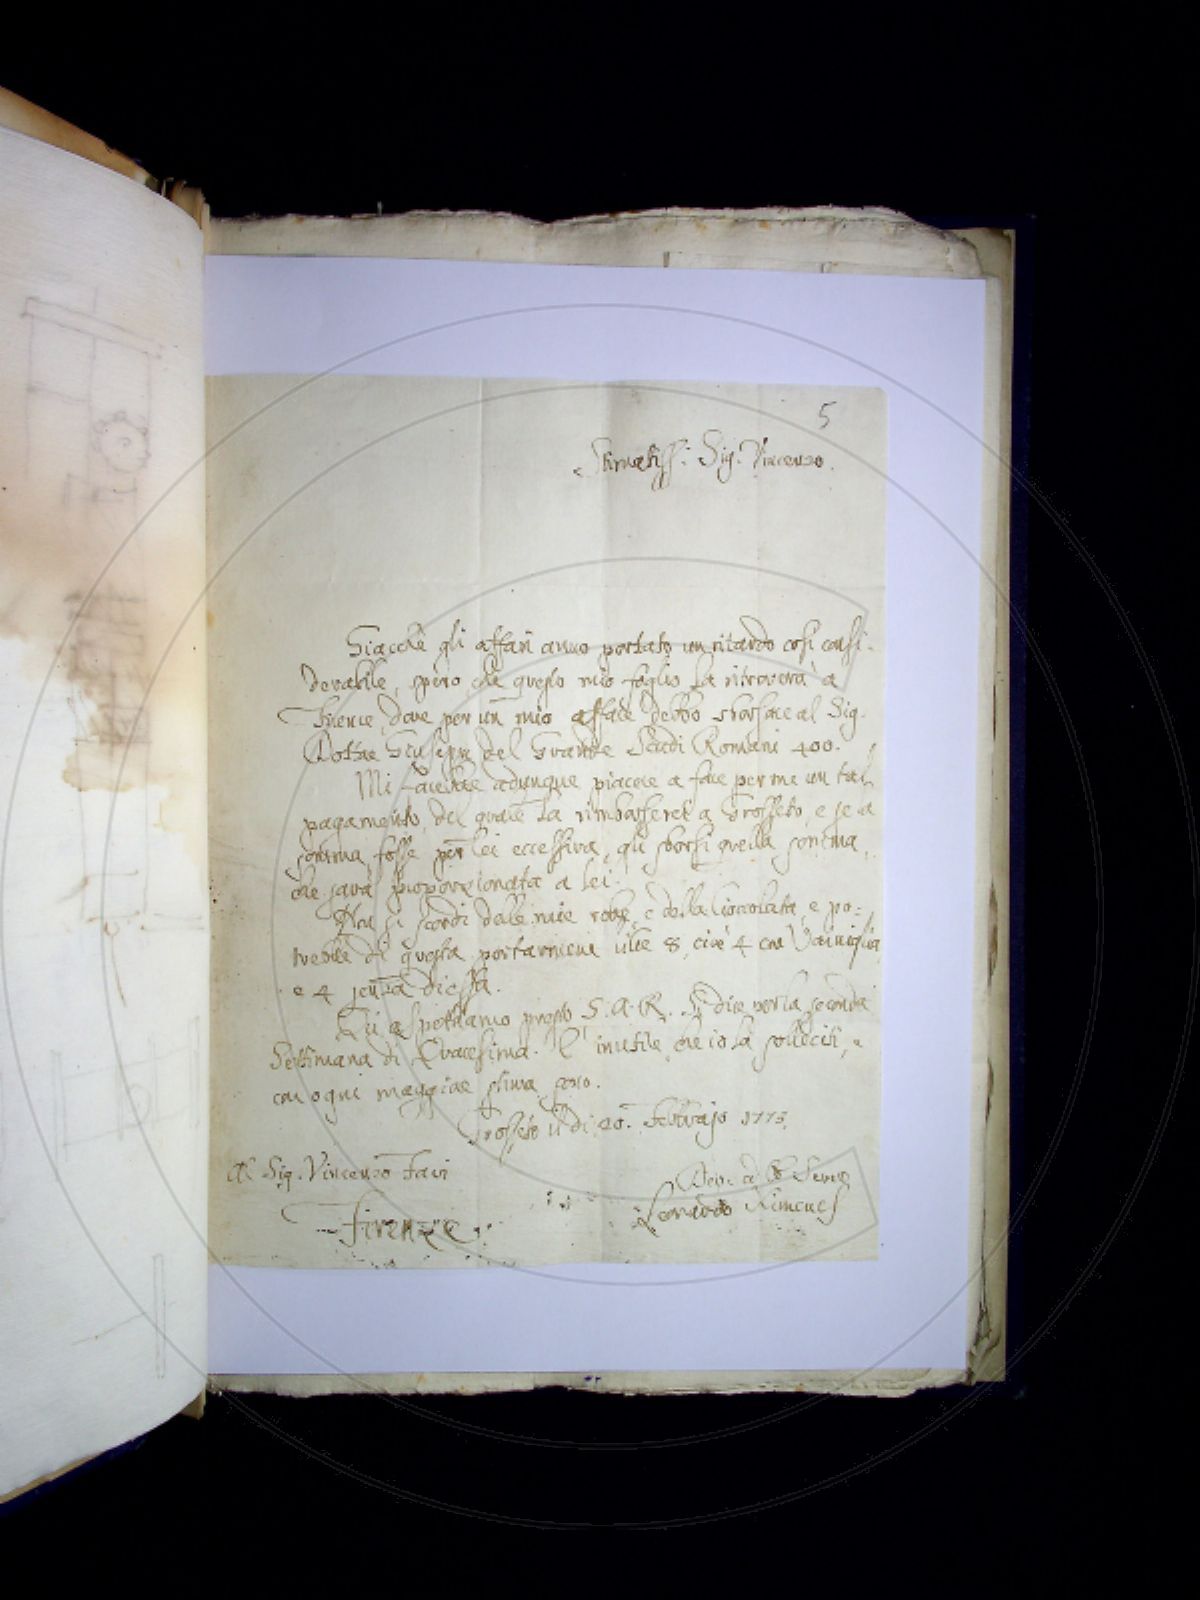 5
Stimatiss: Sig. Vincenzo.
Giacchè gli affari anno portato un ritardo così consi-
derabile, spero che questo mio foglio la ritroverà a
Firenze, dove per un mio affare debbo sborsare al Sig.
Dottore Giuseppe del Grande Scudi Romani 400.
Mi farebbe adunque piacere a fare per me un tal
pagamento, del quale la rimborserei a Grosseto, e se la
somma fosse per lei eccessiva, gli sborsi quella somma,
che sarà proporzionata a lei.
Non si scordi delle mie robe, e della Cioccolata, e po-
trebbe di questa portarmene libe 8, cioè 4 con Vainiglia,
e 4 senza di essa.
Qui aspettiamo presto S. A. R. Si dice per la seconda
Settimana di Quaresima. È inutile, che io la solleciti, e
con ogni maggiore stima sono.
Grosseto il dì 20. Febbrajo 1773.
Al Sig. Vincenzo
Firenze.
Leonardo Ximenes